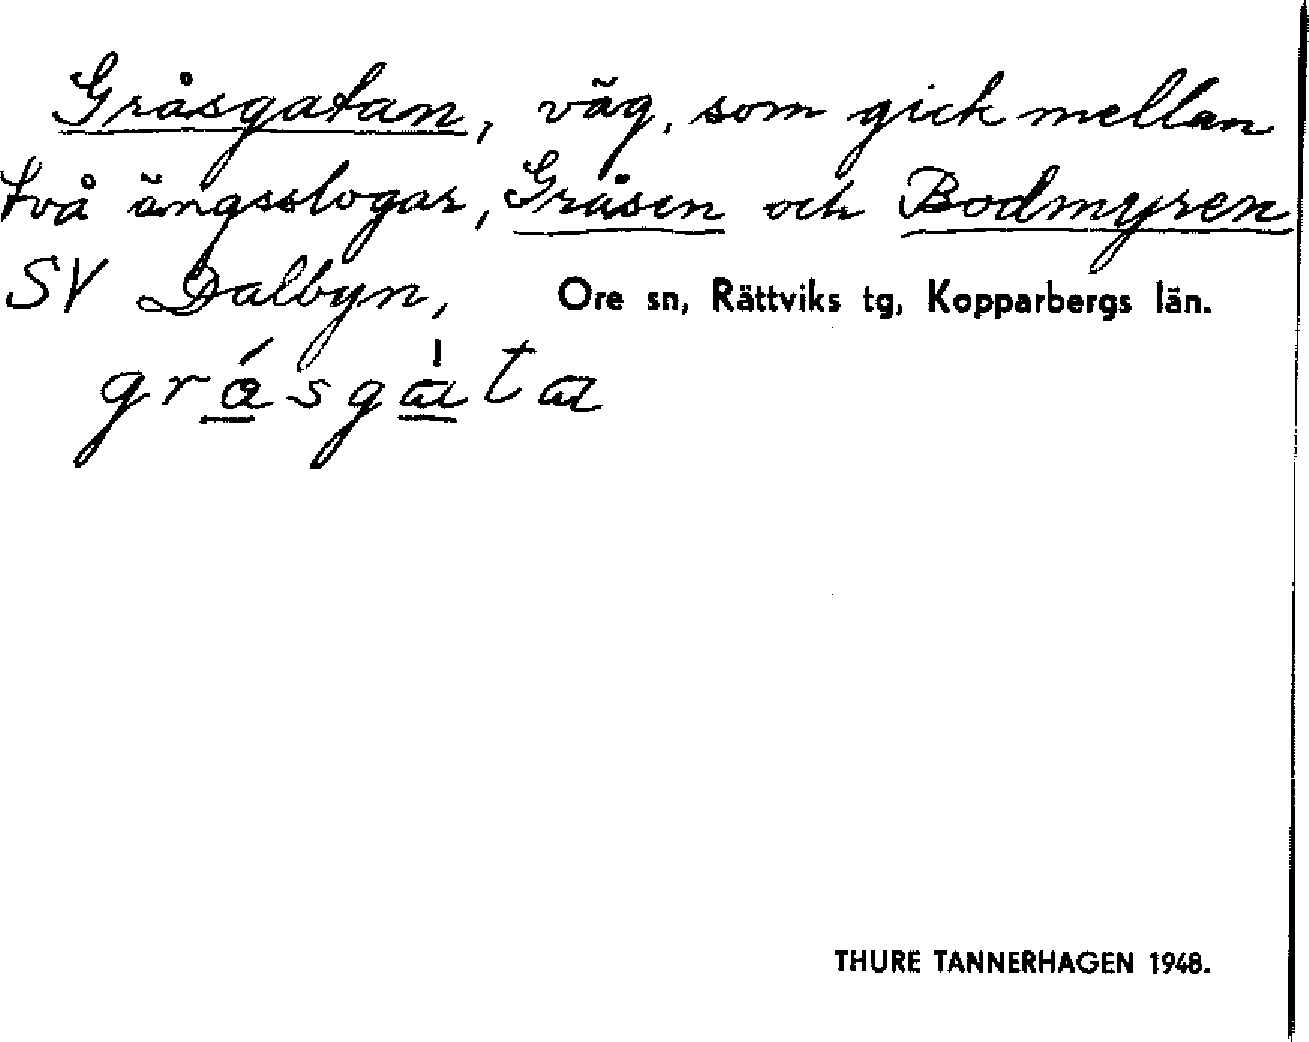 Gråsgatan, väg, som gick mellan
två ängsslogar, Gråsen och Bodmyren
SV Dalbyn, Ore sn, Rättviks tg, Kopparbergs län.
THURE TANNERHAGEN 1948.